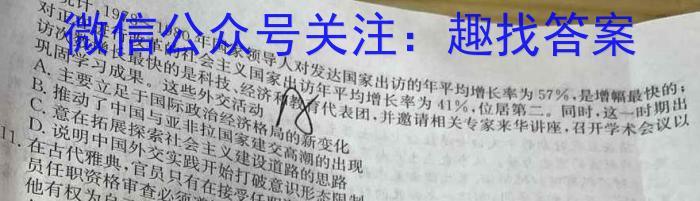 微信公众号关注：趣找答案
统计，1978—1980年国家领导人对发达国家出访的年平均增长率为57%，是增幅最快的；
对正在进行改革的社会主义国家出访年平均增长率为41%，位居第二。同时，这一时期出
访次数增长最快的是科技、经济和教育代表团，并邀请相关专家来华讲座，召开学术会议以
巩固学习成果。这些外交活动
A. 主要立足于国际政治经济格局的新变化
B. 推动了中国与亚非拉国家建交高潮的出现
C. 意在拓展探索社会主义建设道路的思路
D. 说明中国外交实践开始打破意识形态限制
11. 在古代雅典，官员只有在接受任职
员任职资格审查必须
他有权为自己